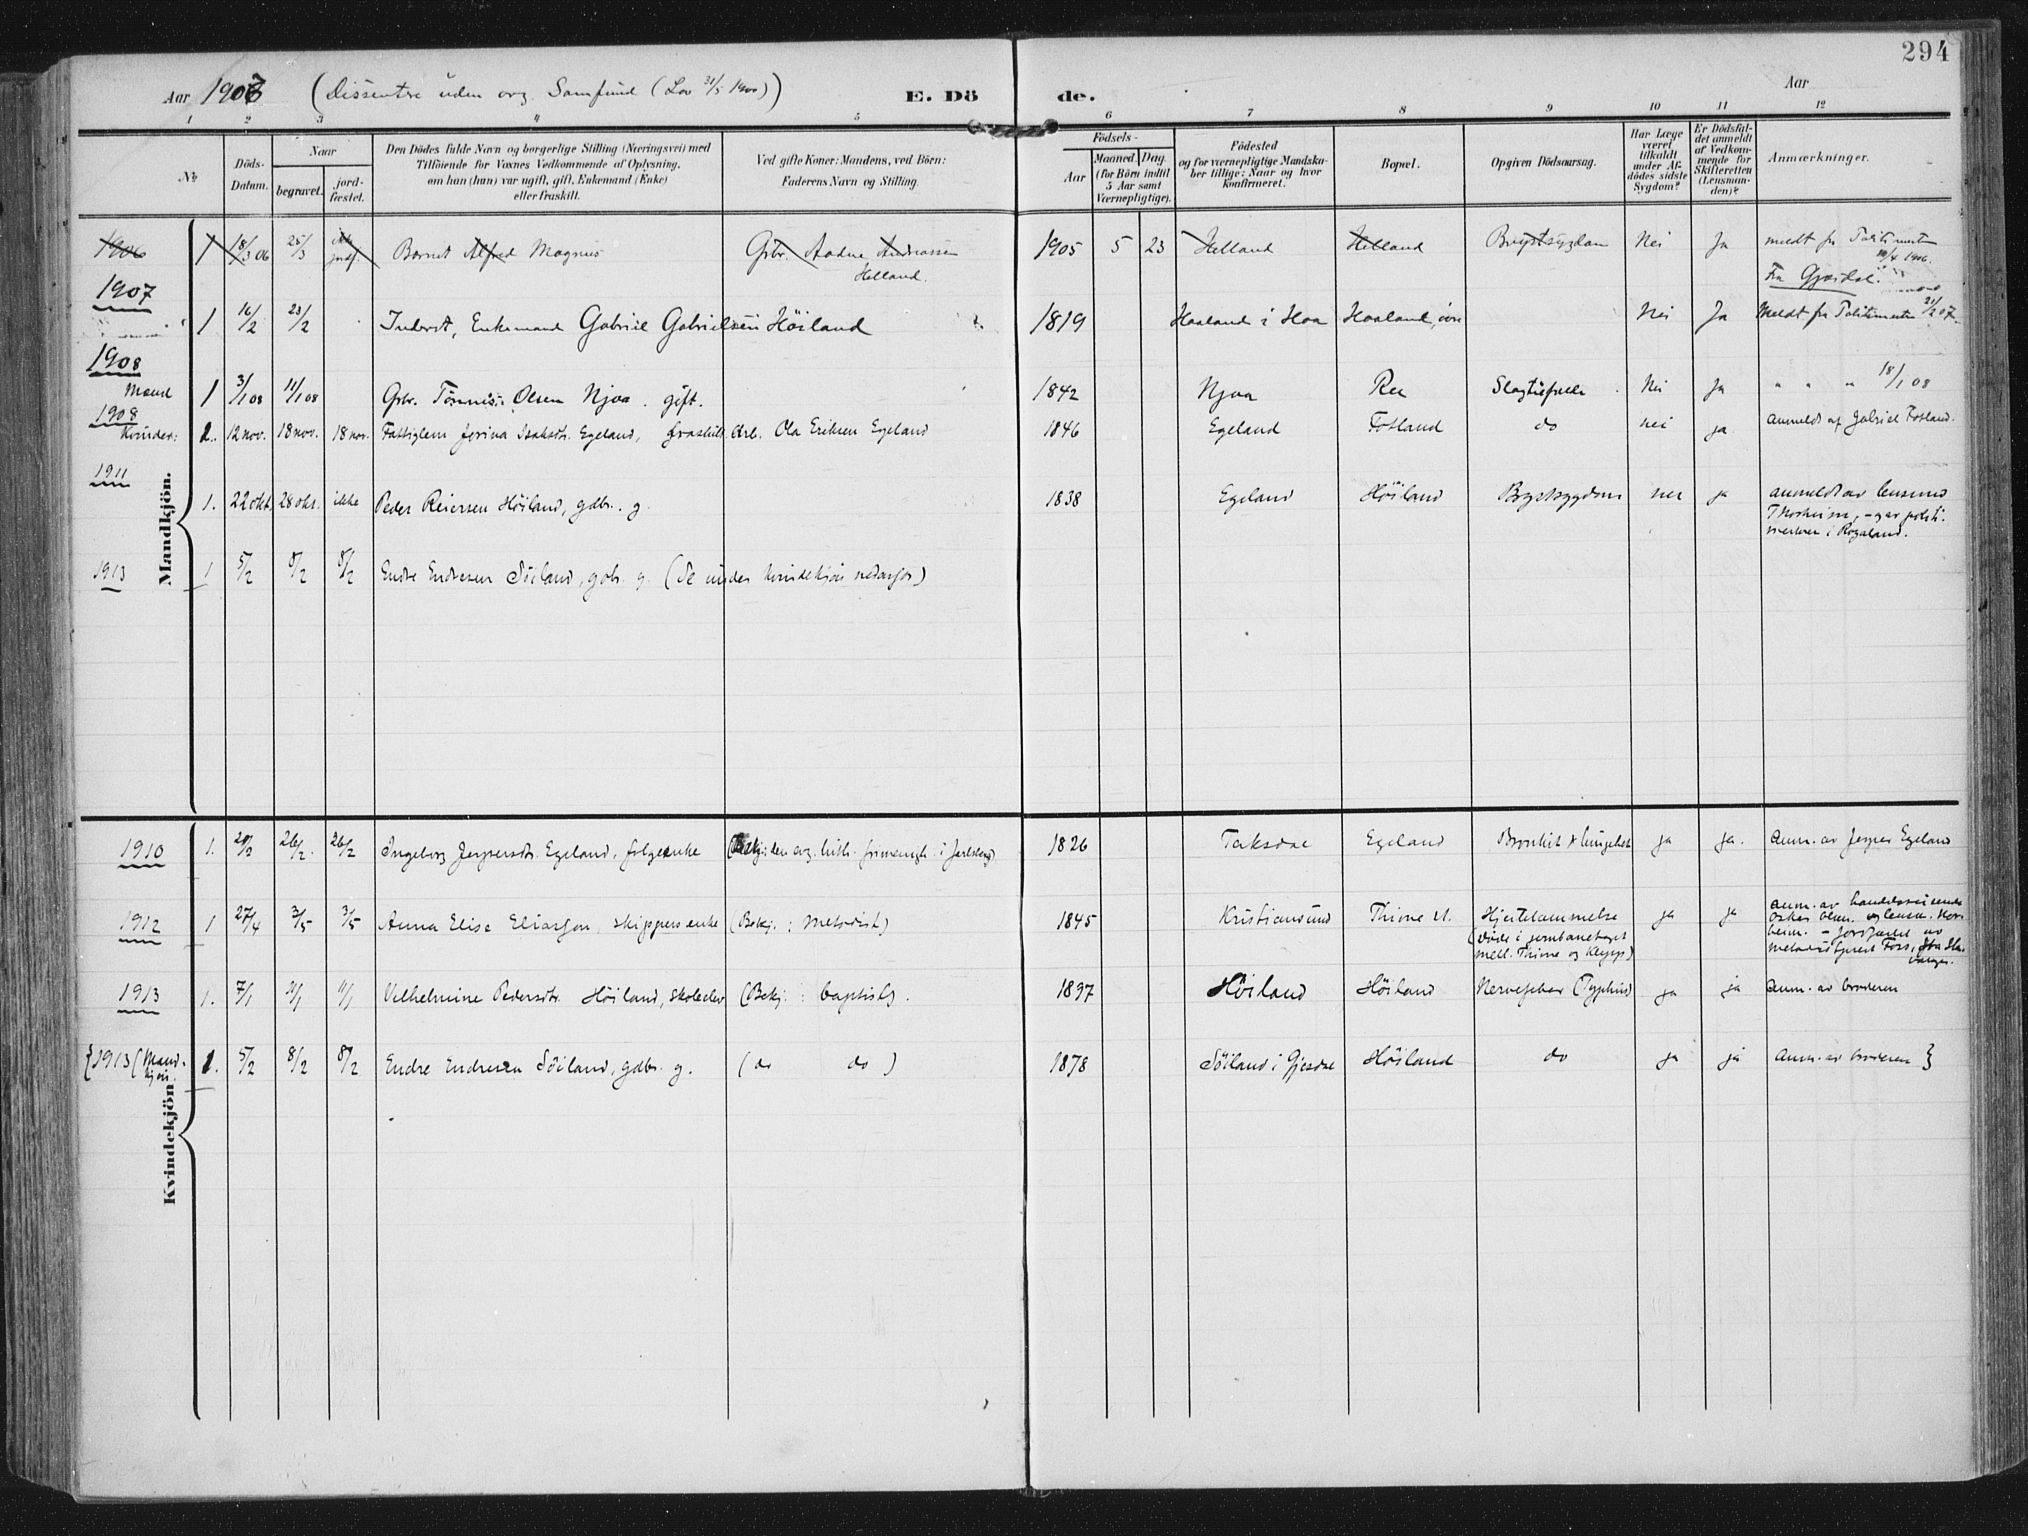 294
Aar 1907 (Dissentere uden org. Samfund (Lov 31/5 1900))
E. Döde.
Aar
1 2 3 4 5 6 7 8 9 10 11 12
No
Döds-Datum.
Naar
begravet. jord-fæstet.
Den Dödes fulde Navn og borgerlige Stilling (Næringsvei) med
Tilföiende for Voxnes Vedkommende af Oplysning,
om han (hun) var ugift, gift, Enkemand (Enke)
eller fraskilt.
Ved gifte Koner: Mandens, ved Börn:
Faderens Navn og Stilling.
Födsels-
Aar Maaned. Dag.
(for Börn indtil
5 Aar samt
Værnepligtige).
Födested
og for værnepligtige Mandska-
ber tillige: Naar og hvor
konfirmeret.
Bopæl.
Opgiven Dödsaarsag.
Har Læge
været
tilkaldt
under Af-
dödes sidste
Sygdom?
Er Dödsfal-
det anmeldt
af Vedkom-
mende for
Skifteretten
(Lensman-
den)?
Anmærkninger.
Mandkjön.
1906 1 18/3 06 25/3 ikke jordf. Barnet Alfred Magnus Gbr. Aadne Andreassen Helland. 1905 5 23 Helland Helland Brystsygdom Nei Ja meldt fra Politimesteren 10/4 1906.
Fra Gjæsdal.
1907
1 16/2 23/2 Inderst, Enkemand Gabriel Gabrielsen Höiland 1819 Haaland i Haa Haaland, övre Nei Ja Meldt fra Politimesteren 21/2 07.
1908
Mænd 1 3/1 08 11/1 08 Gbr. Tönnes Olsen Njaa. gift. 1842 Njaa Ree Slagtilfælde Nei Ja " " " 18/1 08
1908
Kvinder: 2. 12 nov. 18 nov. 18 nov. Fattiglem Jorina Isaksdr. Egeland, fraskilt Arb. Ola Eriksen Egeland 1846 Egeland Fosland do nei ja. Anmeldt af Gabriel Fosland.
1911
1. 22 okt. 28 okt. ikke Peder Reiersen Höiland, gdbr. g. 1838 Egeland Höiland Brystsygdom nei ja anmeldt av lensmand
Thorheim, - gav politi-
mesteren i Rogaland.
1913 1 5/2 8/2 8/2 Endre Endresen Söiland, gdbr. g. (Se under kvindekjön nedenfor)
Kvindekjön
1910 1. 20/2 26/2. 26/2 Ingeborg Jespersdr. Egeland, folgeenke (Bekj: den evg. luth. frimenigh. i Jarlsberg) 1826 Taksdal Egeland Bronkit & lungebet. ja ja. anm. av Jesper Egeland
1912 1 27/4 3/5 3/5 Anna Elise Eliassen, skippersenke (Bekj. : Metodist) 1845 Kristiansund Thime st. Hjertelammelse
(döde i jernbanetoget
mell. Thime og Klepp) ja ja anm. av handelsreisende
Oskar Elim. og lensm. Hor-
heim. - jordfæstet av
metodistprest Foss, Sta-
vanger.
1913 1. 7/1 11/1 11/1 Vilhelmine Pedersdr. Höiland, skoleelev (Bekj. : baptist). 1897 Höiland Höiland Nervefeber (Typhus) ja ja anm. av broderen
{1913 (Mand-
kjön. 1. 5/2 8/2 8/2 Endre Endresen Söiland, gdbr. g. (do do) 1878 Söiland i Gjesdal Höiland do ja ja anm. av broderen }